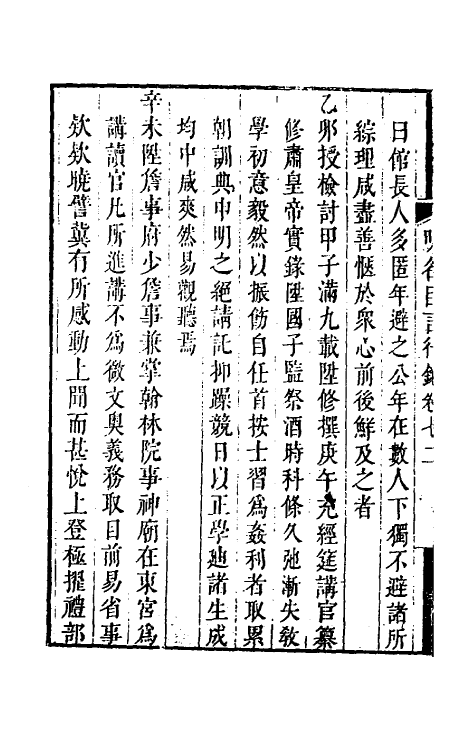 明名臣言行錄卷七二
曰館長人多匿年避之公年在數人下獨不避諸所
綜理咸盡善愜於衆心前後鮮及之者
乙卯授檢討甲子滿九載陞修撰庚午充經筵講官纂
修肅皇帝實錄陞國子監祭酒時科條久弛漸失敎
學初意毅然以振飭自任首按士習爲姦利者取累
朝訓典申明之絕請託抑躁競日以正學迪諸生成
均中咸爽然易觀聽焉
辛未陞詹事府少詹事兼掌翰林院事神廟在東宮爲
講讀官凡所進講不爲微文奥義務取目前易省事
欸欸曉譬冀有所感動上聞而甚悅上登極擢禮部